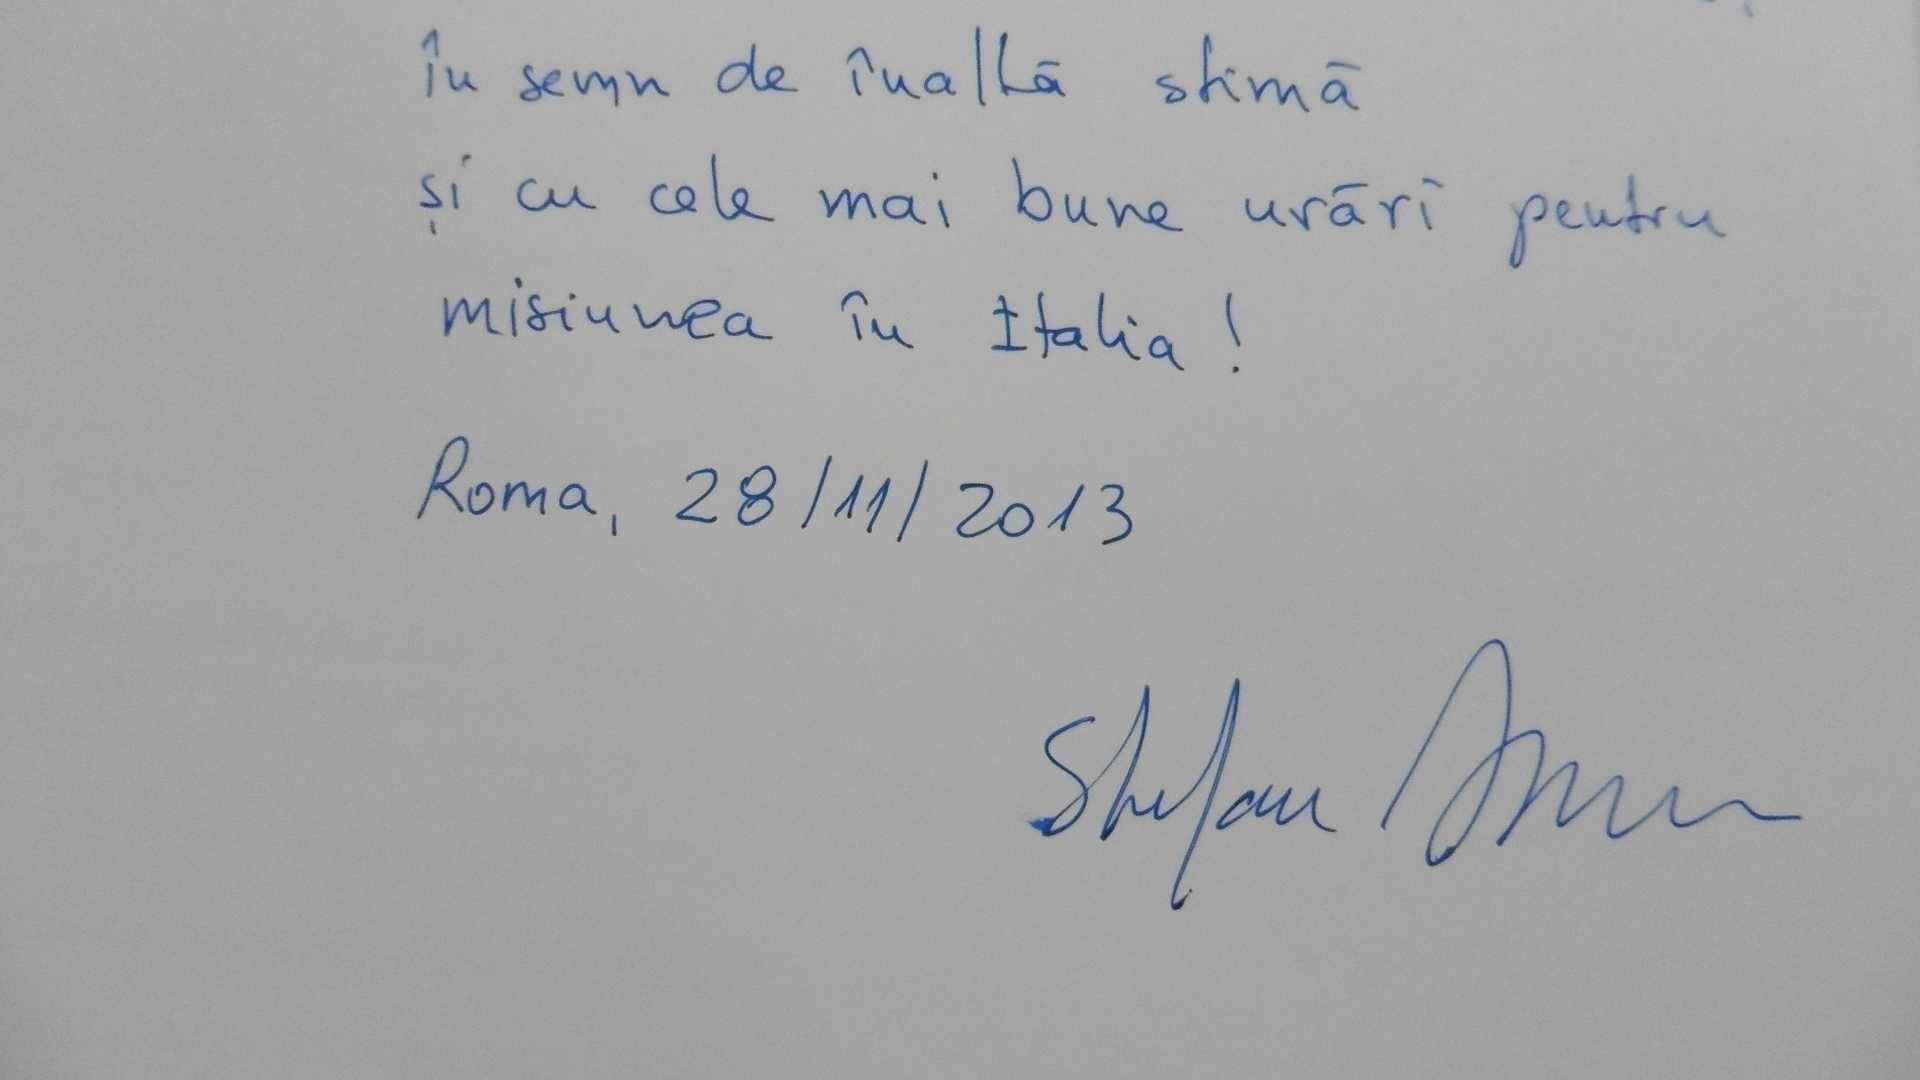 În semn de înaltă stimă
și cu cele mai bune urări pentru
misiunea în Italia!
Roma, 28/11/2013
Stefan